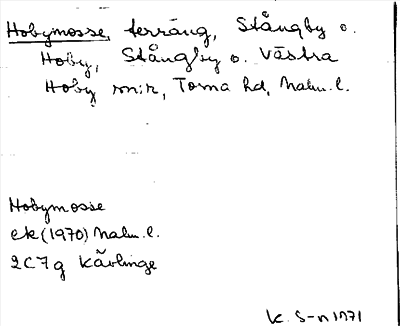 Hobymosse, terräng, Stångby o.
Hoby, Stångby o. Västra
Hoby snr, Torna hd, Malm. l.
Hobymosse
ek (1970) Malm. l.
2C7g Kävlinge
K. S-n 1971